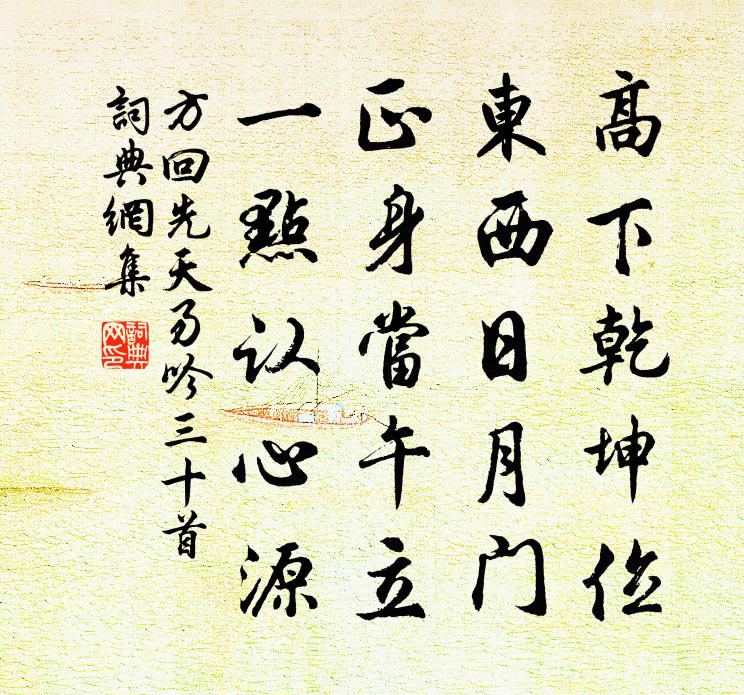 高下乾坤位
東西日月門
正身當午立
一點认心源
方回先天易吟三十首
詞典網集
詞典網印